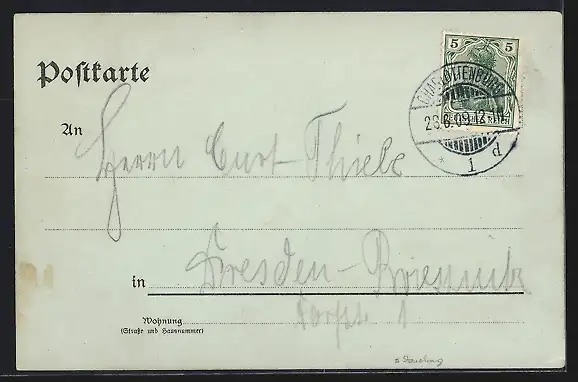 Postkarte
5 5
DEUTSCHES REICH
CHARLOTTENBURG
23.6.09.12-1N.
* 1 d
An
Herrn Curt Thiele
in Dresden-Briesnitz
Wohnung
(Straße und Hausnummer)
Dorfstr. 1